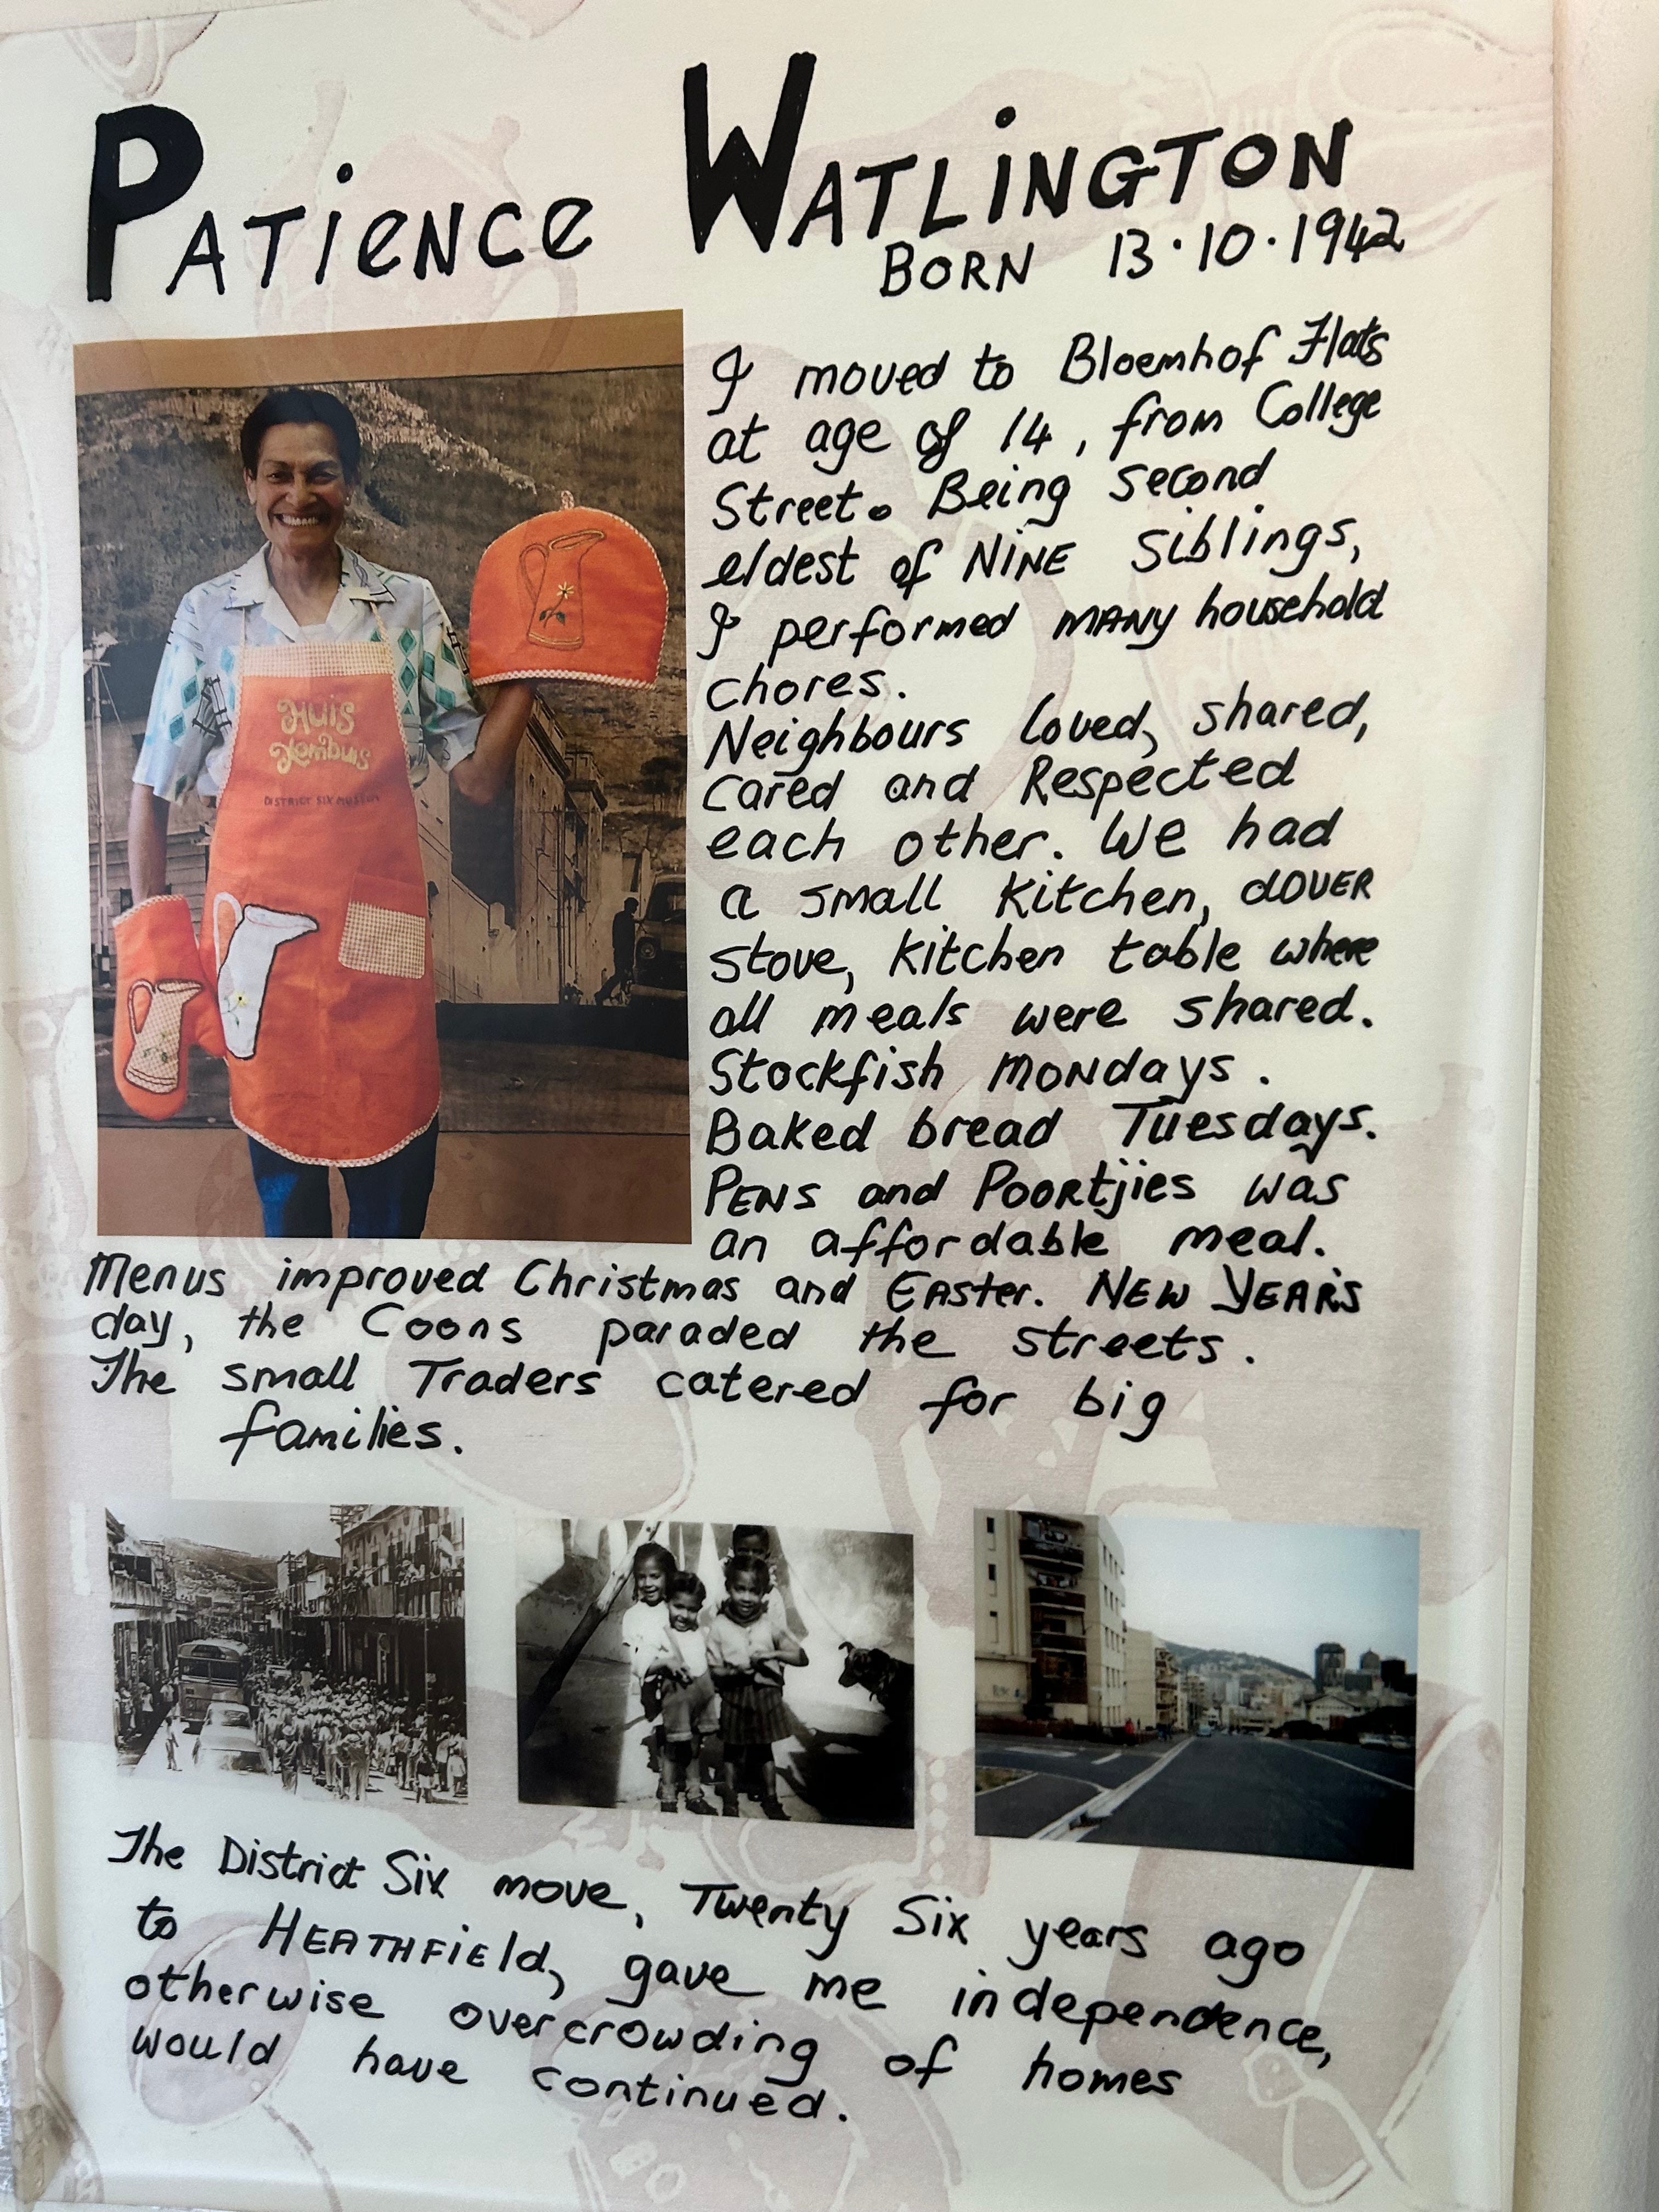 PATiENCE WATLiNGTON
BORN 13·10·1942
I moved to Bloemhof Flats
at age of 14, from College
Street. Being second
eldest of NiNE Siblings,
I performed MANY household
chores.
Neighbours loved, shared,
cared and Respected
each other. We had
a small Kitchen, dOVER
stove, Kitchen table where
all meals were shared.
Stockfish MONdays.
Baked bread Tuesdays.
PENS and POORtjies was
an affordable meal.
Menus improved Christmas and EASter. NEW YEAR's
day, the Coons paraded the streets.
The small Traders catered for big
families.
Huis
Kombuis
DISTRICT SIX MUSEUM
The District Six move, Twenty Six years ago
to HEATHFiEld, gave me independence,
otherwise overcrowding of homes
would have continued.